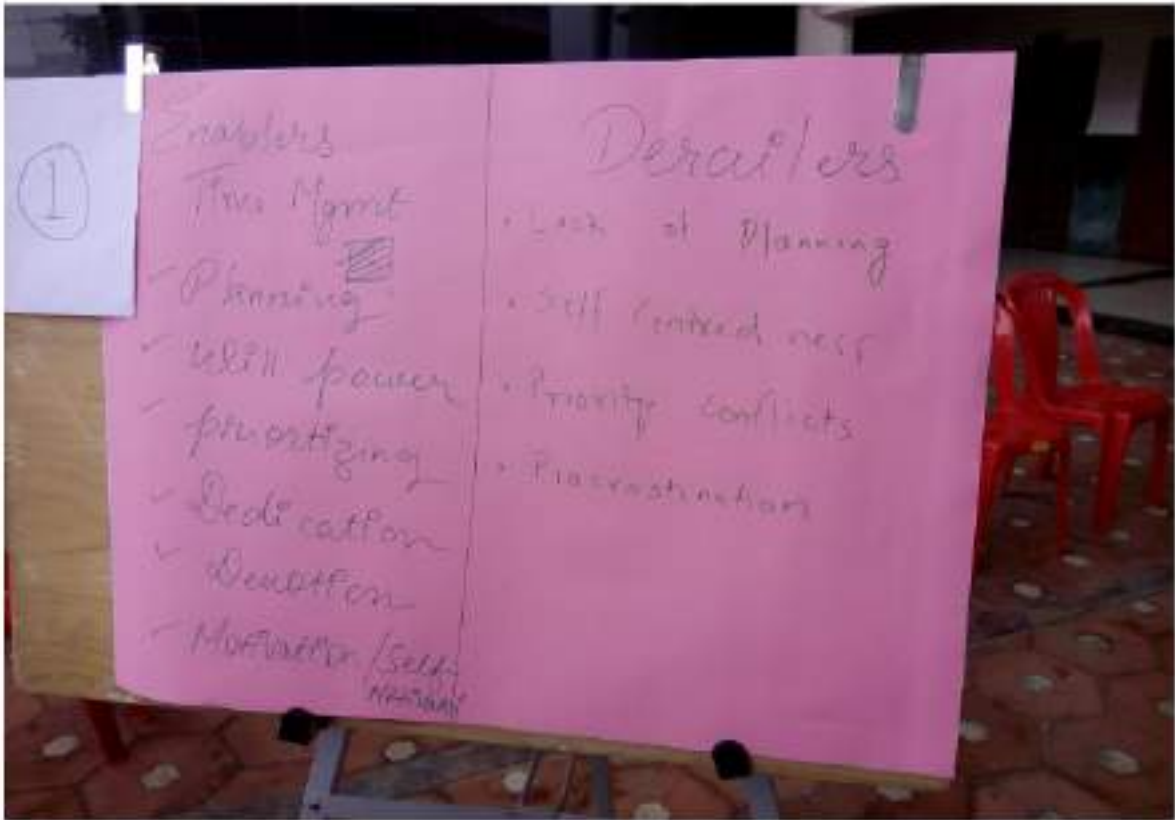 1
Enablers
Time Mgmt
Planning
Will power
priortizing
Dedication
Devotion
Motivation / Self
Derailers
Lack of Planning
Self Centred ness
Priority conflicts
Procrastination